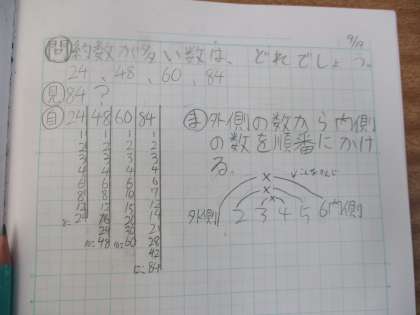 9/17
問 約数が多い数は、どれでしょう。
24、48、60、84
見 84?
自 24 48 60 84
1 1 1 1
2 2 2 2
3 3 3 3
4 4 4 4
6 6 5 6
8 8 6 7
12 12 10 12
24 16 12 14
24 15 21
48 20 28
30 42
60 84
ま 外側の数から内側
の数を順番にかけ
る。
× こんなかんじ
×
×
外側 1 2 3 4 5 6 内側